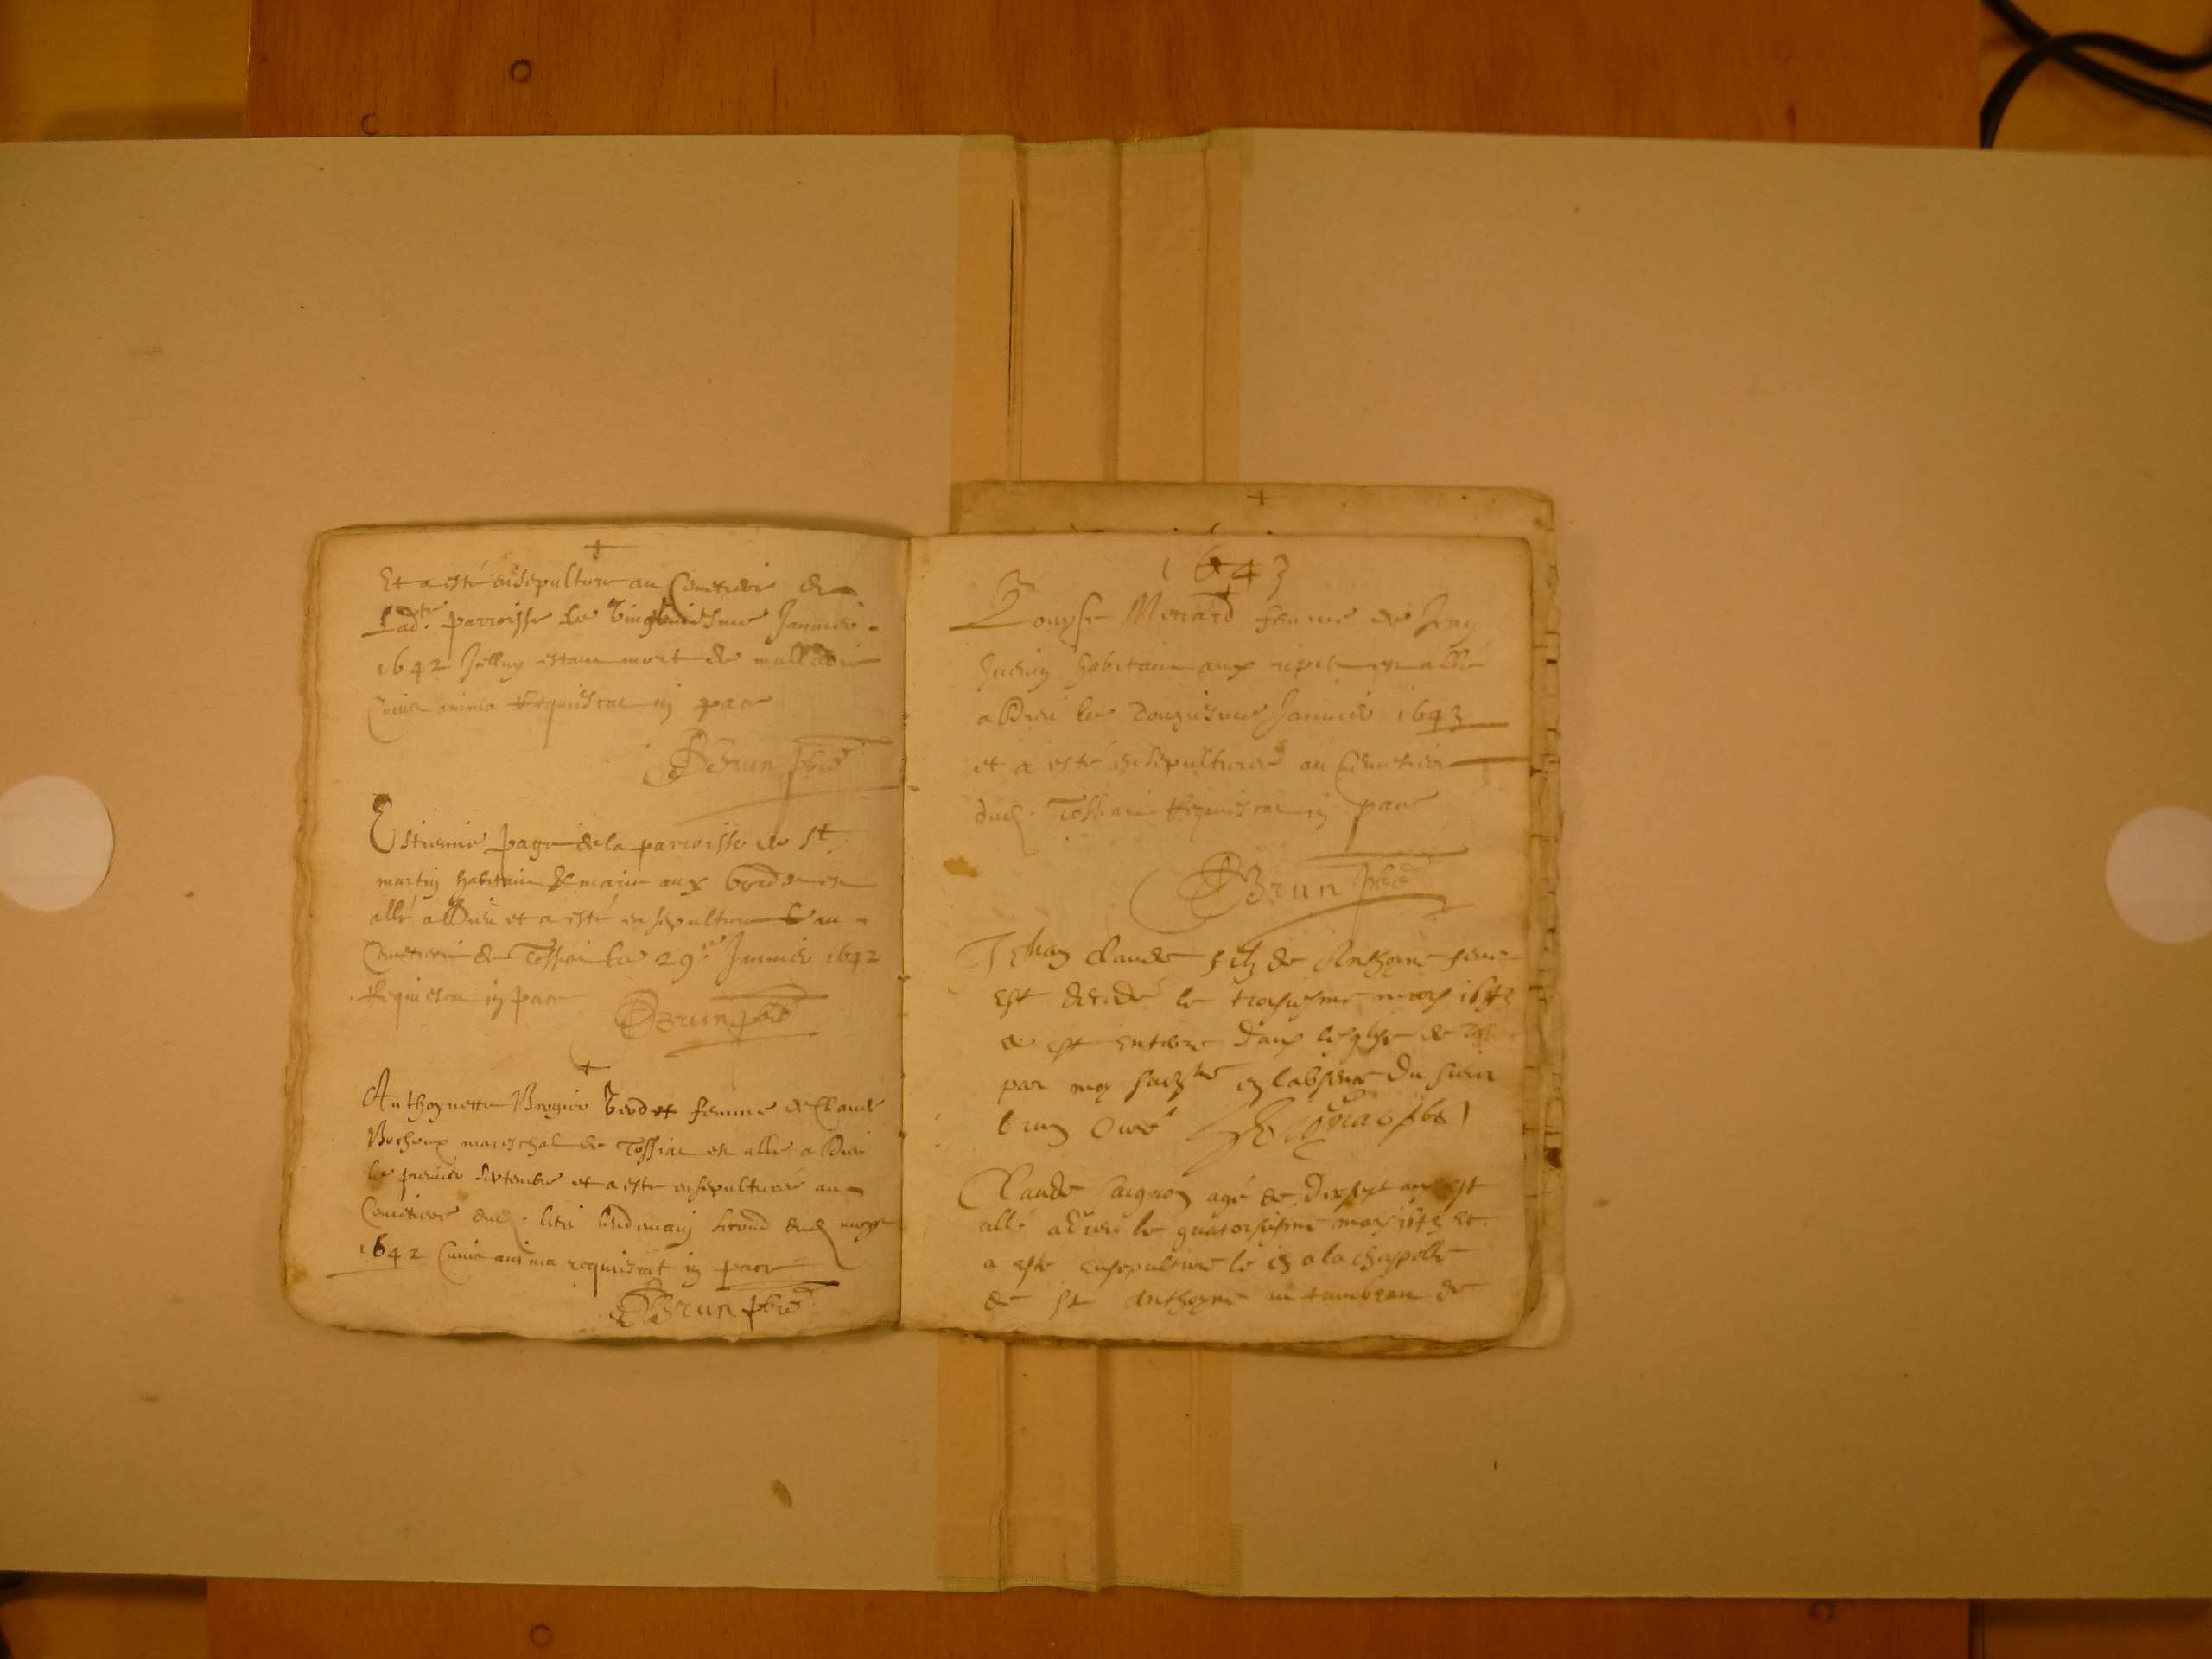 Et a esté ensepulturé au Cimetiere de
Ladte parroisse le Vingtuiesme Janvier
1642 Jelluy estant mort de malladie
Cuius anima Requiescat in pace
Brun pbre
Estienne page de la parroisse de St
martin habitant aux
allé a Dieu et a esté ensepulturé au
Cimetiere de Tossiat le 29e Janvier 1642
Requiescat in pace Brun pbre
Anthoynette femme de Claude
Bochoux mareschal de Tossiat est allé a Dieu
le premier septembre et a esté ensepulturée au
Cimetiere dud. lieu lendemain second dud moys
1642 Cuius anima requiescat in pace
Brun pbre
1643
Louyse femme de Jean
habitant aux est allé
a Dieu le Douziesme Janvier 1643
et a esté ensepulturée au Cimetiere
dud. Tossiat Requiescat in pace
Brun pbre
Jehan Claude filz de Anthoyne
est decedé le troisiesme mars 1643
et est enterré dans leglise de
par moy en labsence Du sieur
brun Curé
Claude agé de Dixsept ans est
allé a Dieu le quatorsiesme mars 1643 et
a esté ensepulturé le 15 a la chappelle
de St Anthoyne au tumbeau de